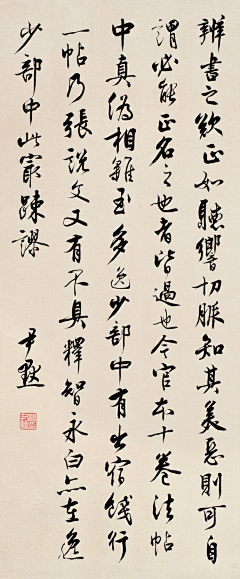 辨書之難正如聽響切脈知其美惡則可自
謂必能正名之也者皆過也今官本十卷法帖
中真偽相雜至多逸少部中有出宿餞行
一帖乃張說文又有不具釋智永白亦在逸
少部中此最踈謬
尹默